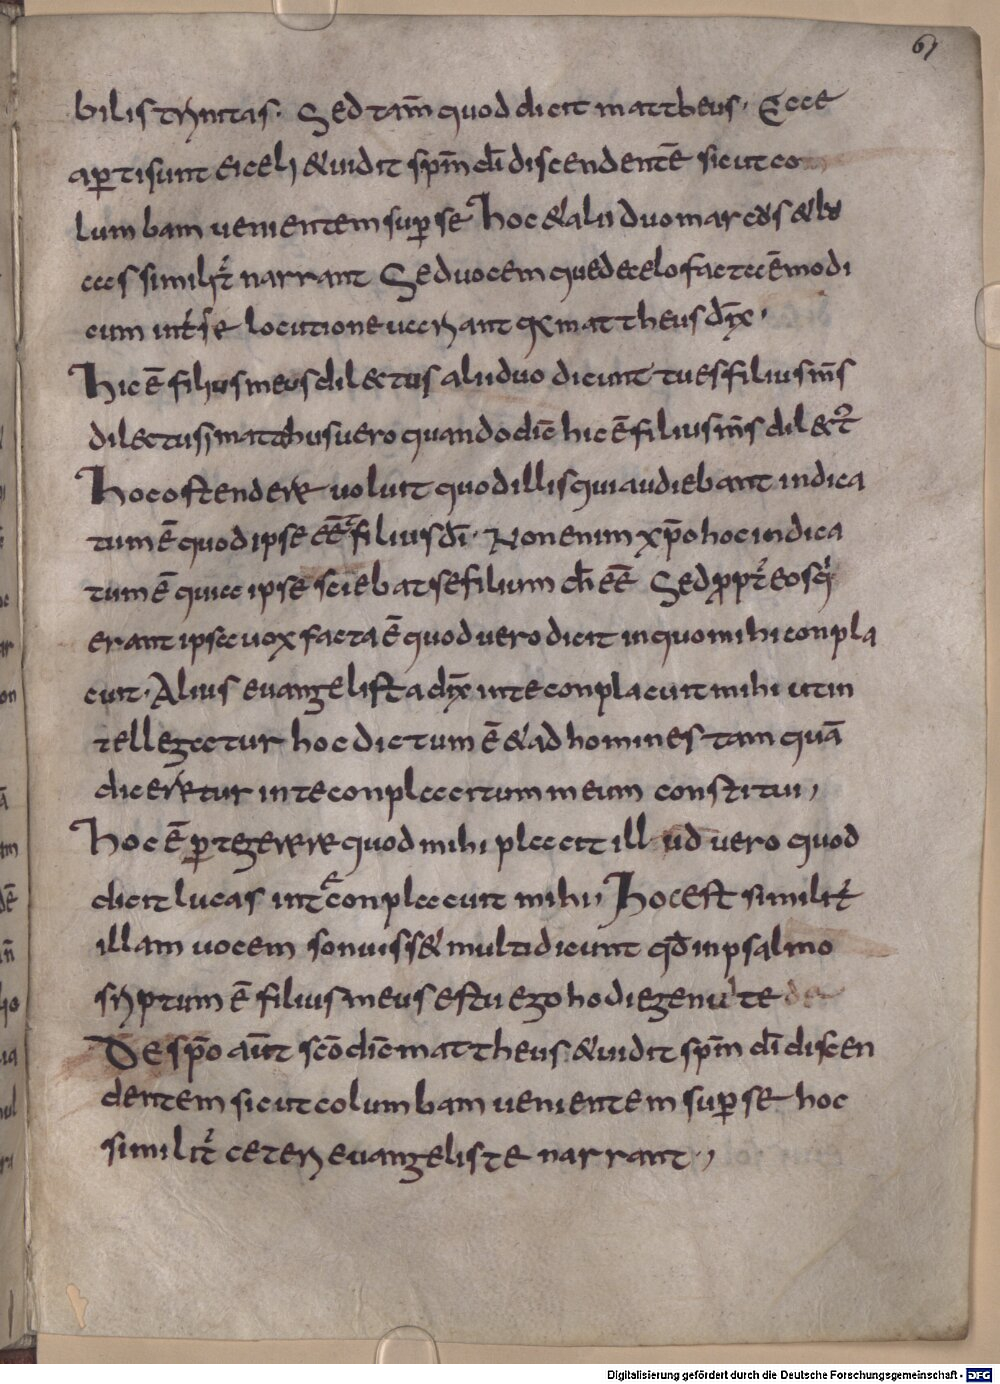 61
bilis trinitas. Sed tam̄ quod dicit mattheus. Ecce
aꝑti sunt ei celi &uidit sp̄m dī discendentē sicut co
lumbam uenientem suꝑ se Hoc & alii duo marcus & lu
cas similit̓ narrant Sed uocem que de celo facta ē modi
cum int̓ se locutione uariant qx mattheus dīx,
Hic ē filius meus dilectus alii duo dicunt tu es filius m̄s
dilectus, matthus uero quando dīc hic ē filius m̄s dil&t᾽
Hoc ostendere uoluit quod illis qui audiebant indica
tum ē quod ipse eē filius dī. Non enim xp̄o hoc indica
tum ē quia ipse sciebat se filium dī eē Sed ꝓpt̓ eos qi
erant ipsa uox facta ē quod uero dicit in quo mihi conpla
cuit. Alius euangelista dīx in te conplacuit mihi ut in
tellegatur hoc dictum ē & ad homines tam quā
diceretur in te conplacitum meum constitui,
Hoc ē ꝑtegerere quod mihi placit illud uero quod
dicit lucas in te conplacuit mihi, Hoc est similit̓
illam uocem sonuiss& multi dicunt qd̄ in psalmo
scriptum ē filius meus es tu ego hodie genui te de
De sp̄o aūt scō dīc mattheus. &uidit sp̄m dī discen
dentem sicut columbam uenientem suꝑ se hoc
similit̓ ceteri euangeliste narrant.,
Digitalisierung gefördert durch die Deutsche Forschungsgemeinschaft - DFG